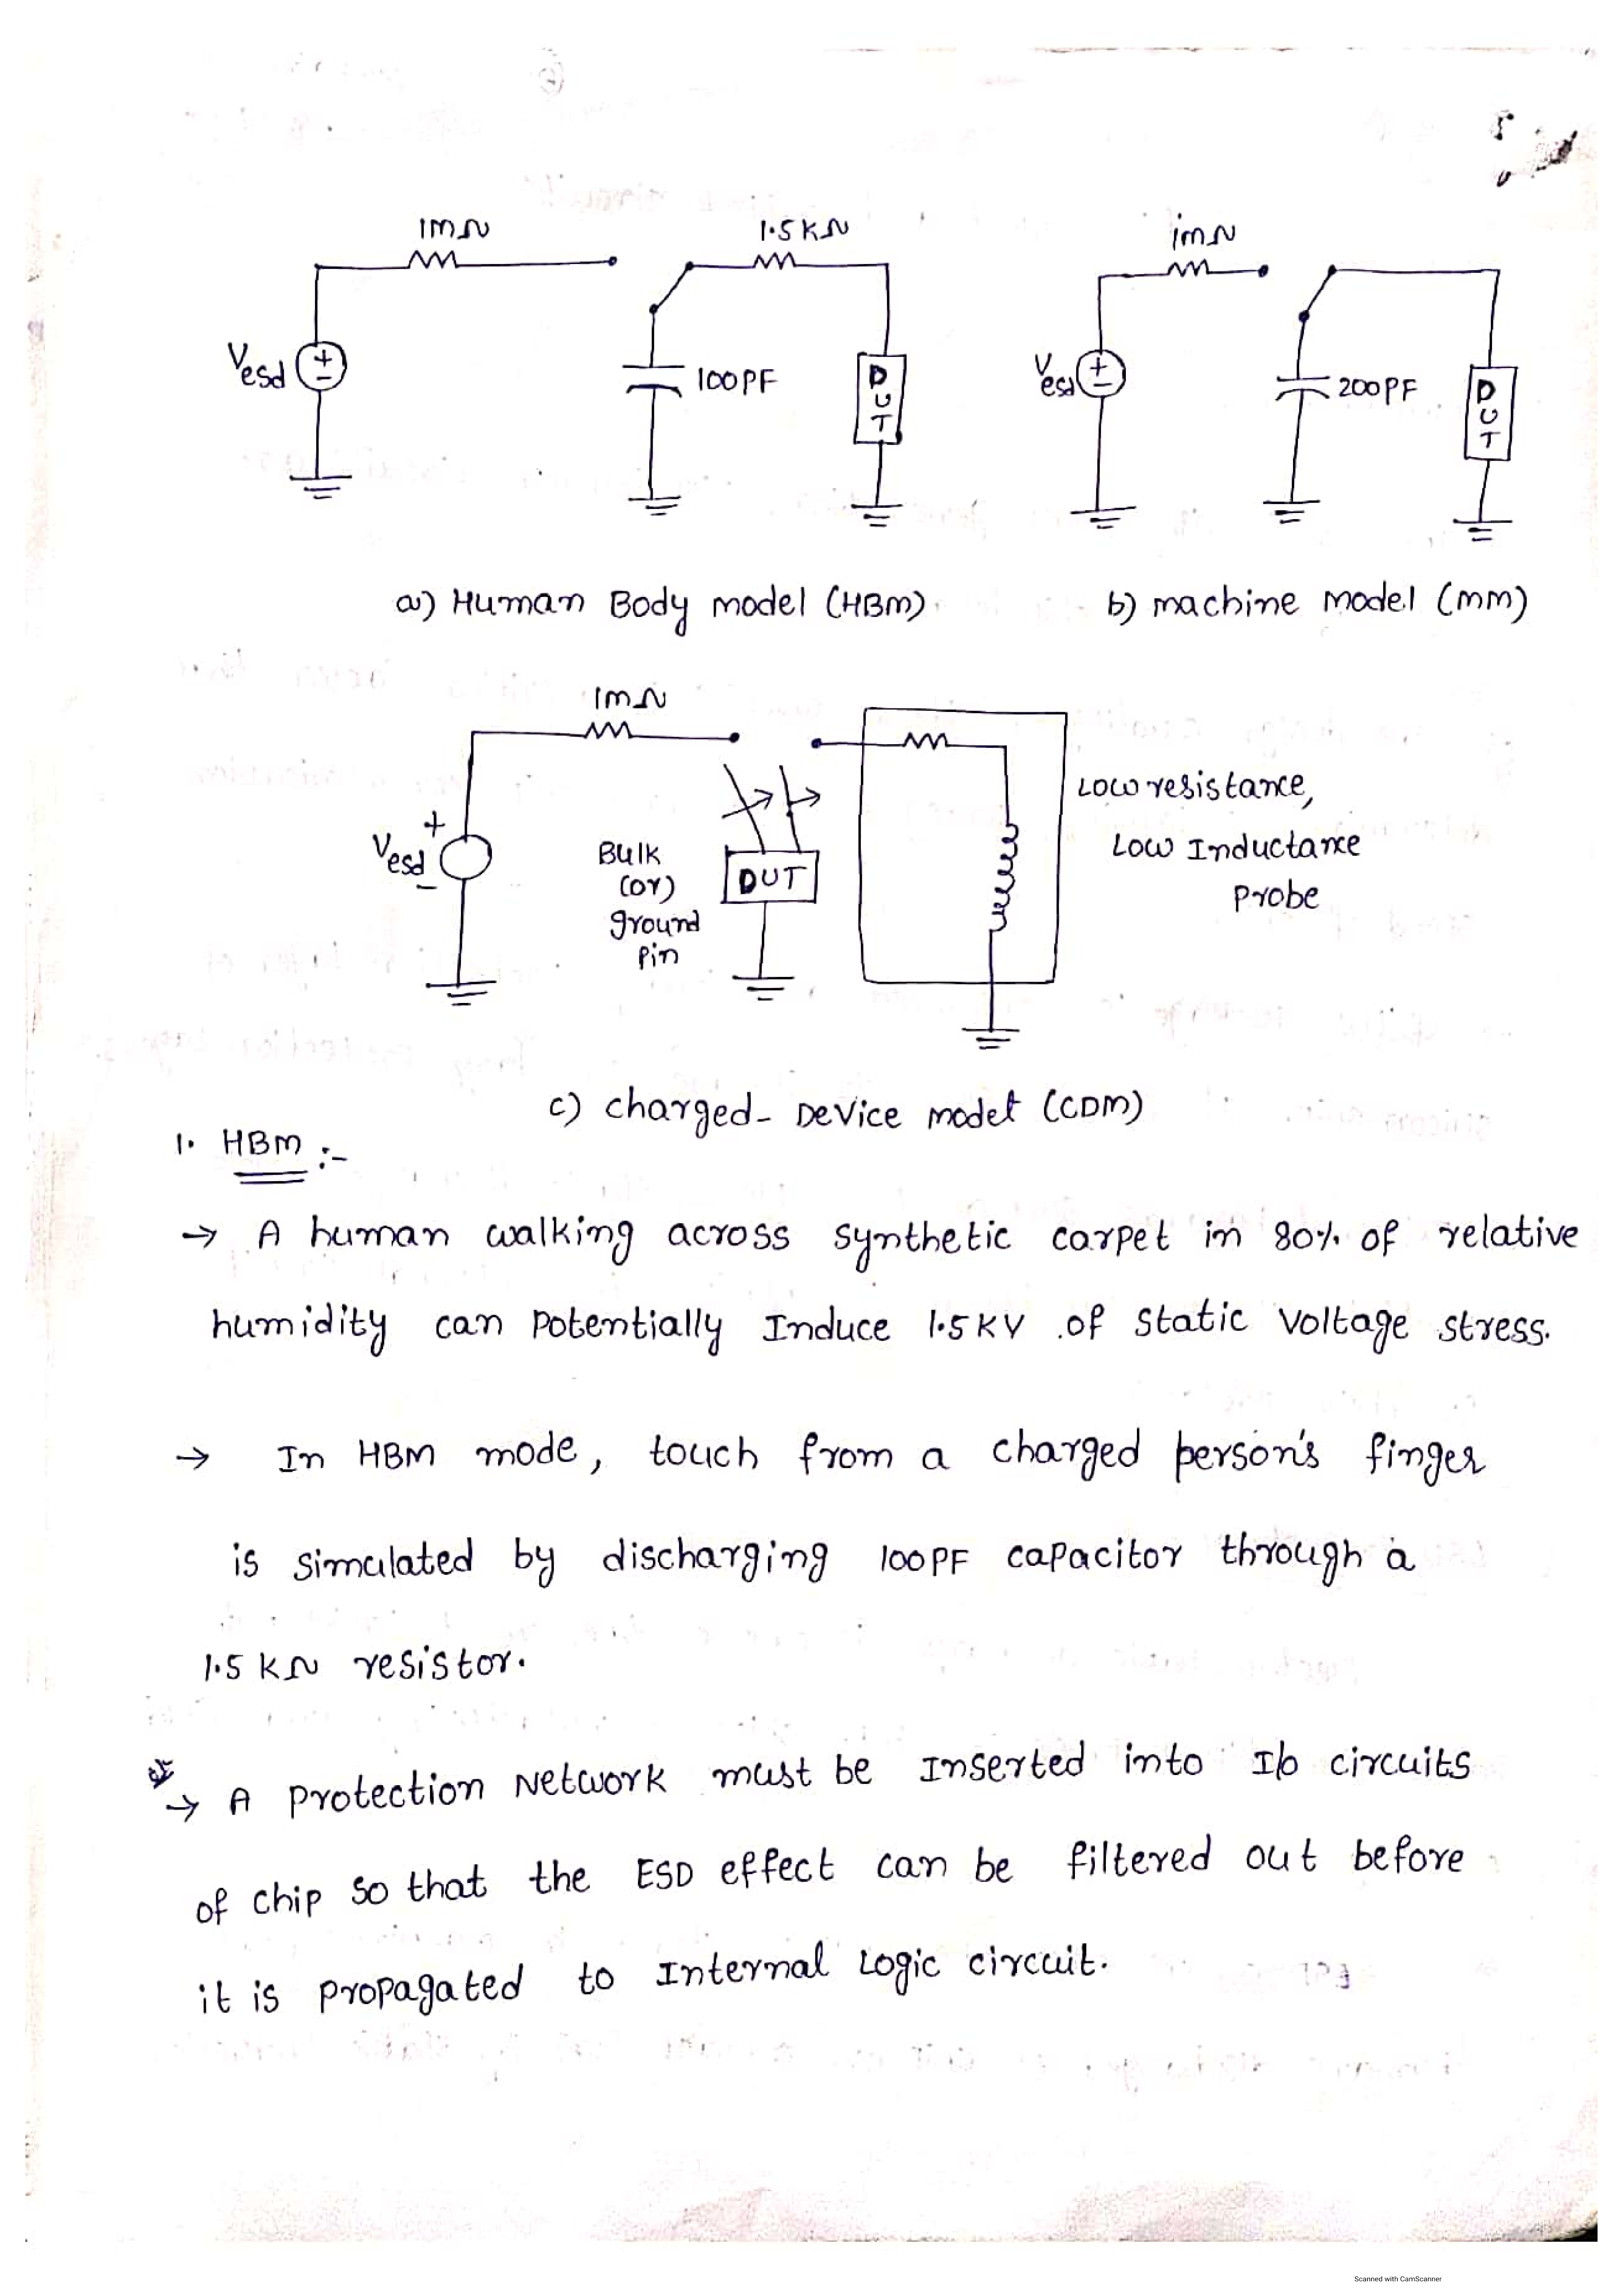 1MΩ
1.5KΩ
1MΩ
Vesd
+
-
100PF
DUT
Vesd
+
-
200PF
DUT
a) Human Body model (HBM)
b) machine model (MM)
1MΩ
Vesd
+
-
Bulk
(or)
ground
Pin
DUT
Low resistance,
Low Inductance
Probe
c) charged- Device model (CDM)
1. HBM :-
→ A human walking across synthetic carpet in 80% of relative
humidity can potentially Induce 1.5KV of static voltage stress.
→ In HBM mode, touch from a charged person's finger
is simulated by discharging 100PF capacitor through a
1.5 KΩ resistor.
→ A Protection Network must be Inserted into I/o circuits
of chip so that the ESD effect can be filtered out before
it is propagated to Internal Logic circuit.
Scanned with CamScanner